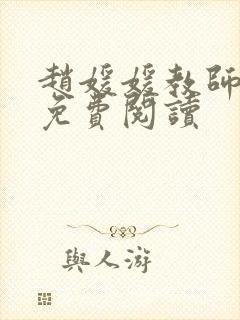 趙媛媛教師
免費閱讀
與人游